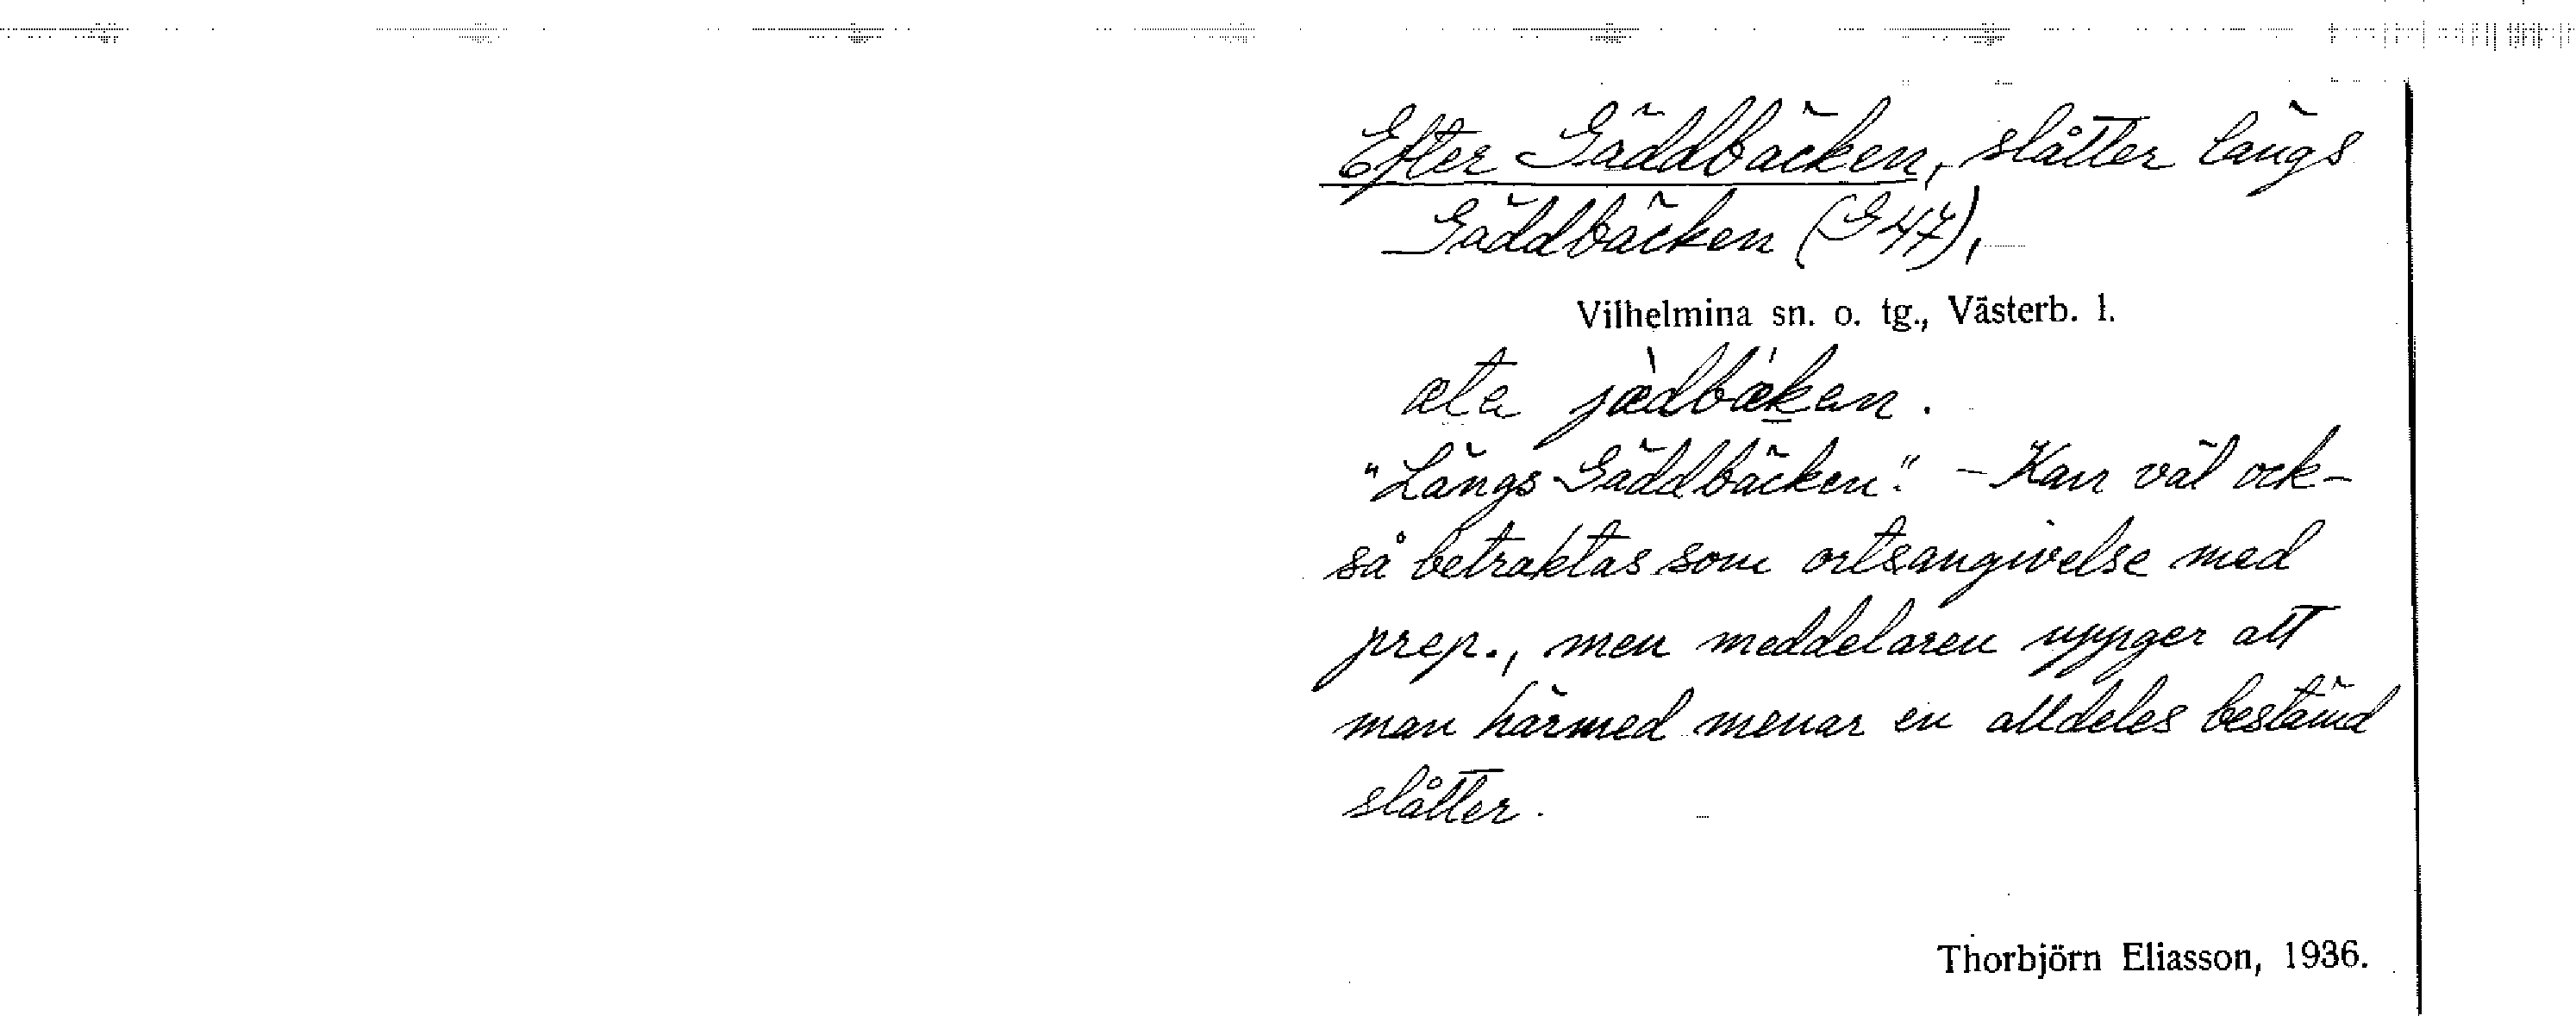 Efter Gäddbäcken, slåtter längs
Gäddbäcken (G 47),
Vilhelmina sn. o. tg., Västerb. l.
æta jæ̀dbǽkan.
"Längs Gäddbäcken". - Kan väl ock-
så betraktas som ortsangivelse med
prep., men meddelaren uppger att
man härmed menar en alldeles bestämd
slåtter.
Thorbjörn Eliasson, 1936.